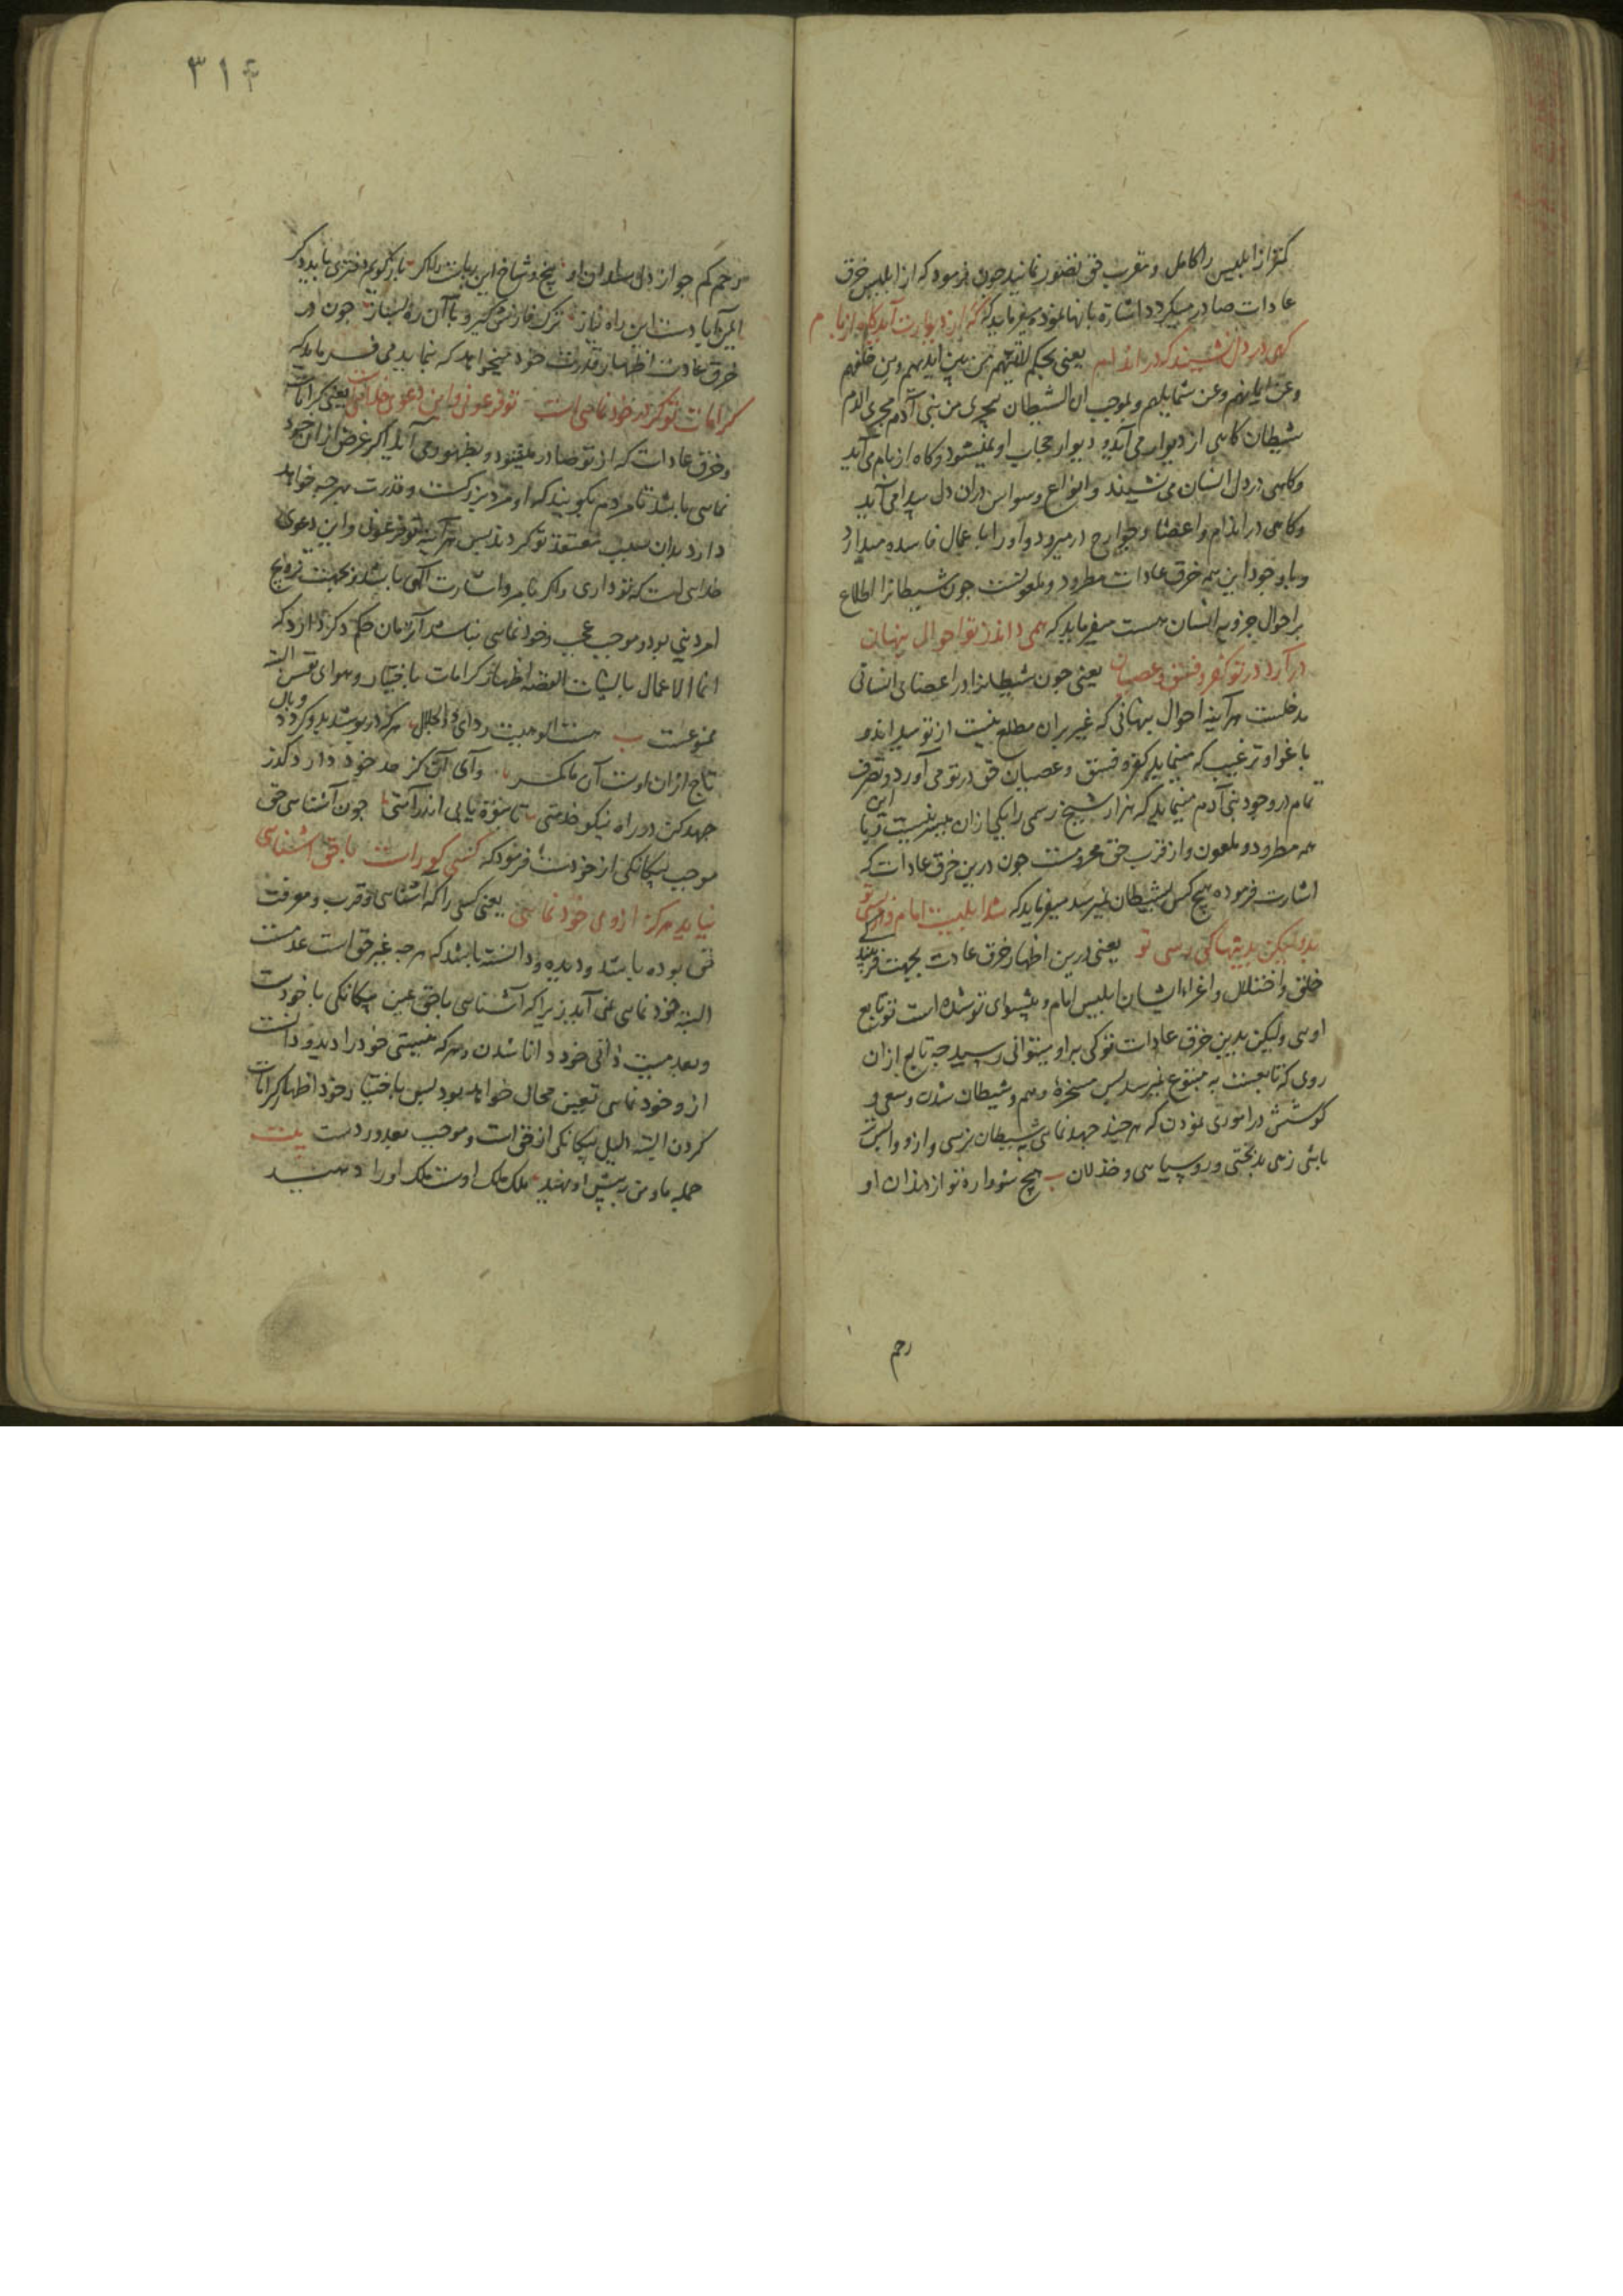 کمتر از ابلیس را کامل و مقرب حق تصور نمانید چون فرمود که از ابلیس خرق
عادات صادر میکردد اشاره بانها نموده میفرماید که که از دیوارت آید کاه از بام
کهی در دل نشیند که در اندام یعنی بحکم لآتینهم من بین ایدیهم ومن خلفهم
وعن ایمانهم وعن شمایلهم وبموجب ان الشیطان یجری من بنی آدم مجری الدم
شیطان کاهی از دیوار می آید و دیوار حجاب او نمیشود و کاه از بام می آید
وکاهی در دل انسان می نشیند و انواع وسواس در آن دل پیدا می آید
وکاهی در اندام و اعضا و جوارح در میرود و آن را باعمال فاسده میدارد
وباوجود این همه خرق عادات مطرود و ملعونست چون شیطانرا اطلاع
بر احوال جزویه انسان هست میفرماید که همی داند ز تو احوال پنهان
در آرد در تو کفر و فسق و عصیان یعنی چون شیطانرا در اعضای انسانی
مدخلست هر آینه احوال پنهانی که غیر بر آن مطلع نیست از تو میداند و
باغوا و ترغیب که مینماید کفر و فسق و عصیان حق در تو می آورد و تصرف
تمام در وجود بنی آدم مینماید که هزار شیخ رسمی را یکی از آن میسر نیست و با این
همه مطرود و ملعون و از قرب حق محرومست چون درین خرق عادات که
اشارت فرموده هیچ کس بشیطان نمیرسد میفرماید که شد ابلیست امام و در پسی تو
بدو لیکن بدینها کی رسی تو یعنی درین اظهار خرق عادت بجهت فریب
خلق و اختلال و اغراء ایشان ابلیس امام و پیشوای تو شده است تو تابع
اوئی ولیکن بدین خرق عادات تو کی براو میتوانی رسید چه تابع از آن
روی که تابعست به متبوع نمیرسد پس مسخره وهم و شیطان شدن و سعی و
کوشش در اموری نمودن که هر چند جهد نمائی به شیطان نرسی و از و واپس تر
باشی زهی بدبختی و روسیاهی و خذلان هیچ شنواره تو از انذان او
رحم
۳۱۴
رحم کم جو از دل سلطان او بیخ و شاخ این ریاست را اکر باز کویم دفتری باید دکر
چون در
خرق عادت اظهار قدرت خود میخواهد که بنماید می فرماید که
کرامات تو کر در خود نمائی است تو فرعونی و این دعوی خدائیست یعنی کرامات
وخرق عادات که از تو صادر میشود و بظهور می آید اکر غرض از آن خود
نمائی باشد تا مردم بکویند که او مرد بزرکست و قدرت بهر چه خواهد
دارد بدان سبب معتقد تو کردند پس هر آینه تو فرعونی و این دعوی
خدائی است که تو داری و اکر بامر و اشارت الهی باشد و بجهت ترویج
امر دینی بود و موجب عجب و خود نمائی نباشد آنرمان حکم دکر دارد که
انما الاعمال بالنیات القصه اظهار کرامات باختیار و هوای نفس البته
ممنوعست هست الوهیت ردای ذوالجلال هر که در پوشد بر و کردد وبال
تاج از آن اوست آن ما کمر وای آن کز حد خود دارد کذر
جهد کن در راه نیکو خدمتی تا نبوة یابی اندر امتی چون آشنائی حق
موجب بیکانکی از خودست فرمود که کسی کو راست با حق آشنائی
نیاید هرکز از وی خود نمائی یعنی کسی را که آشنائی و قرب و معرفت
حق بوده باشد و دیده و دانسته باشد که هر چه غیر حق است عدمست
البته خود نمائی نمی آید زیرا که آشنائی با حق عین بیکانکی با خودست
وبعدمیت ذاتی خود دانا شدن و هر که نیستی خود را دید و دانست
از و خود نمائی تعین محال خواهد بود پس باختیار خود اظهار کرامات
کردن البته دلیل بیکانکی از حق است و موجب بعد و ردست بیت
جمله ما و من به پیش او نهید ملک ملک اوست ملک او را دهید